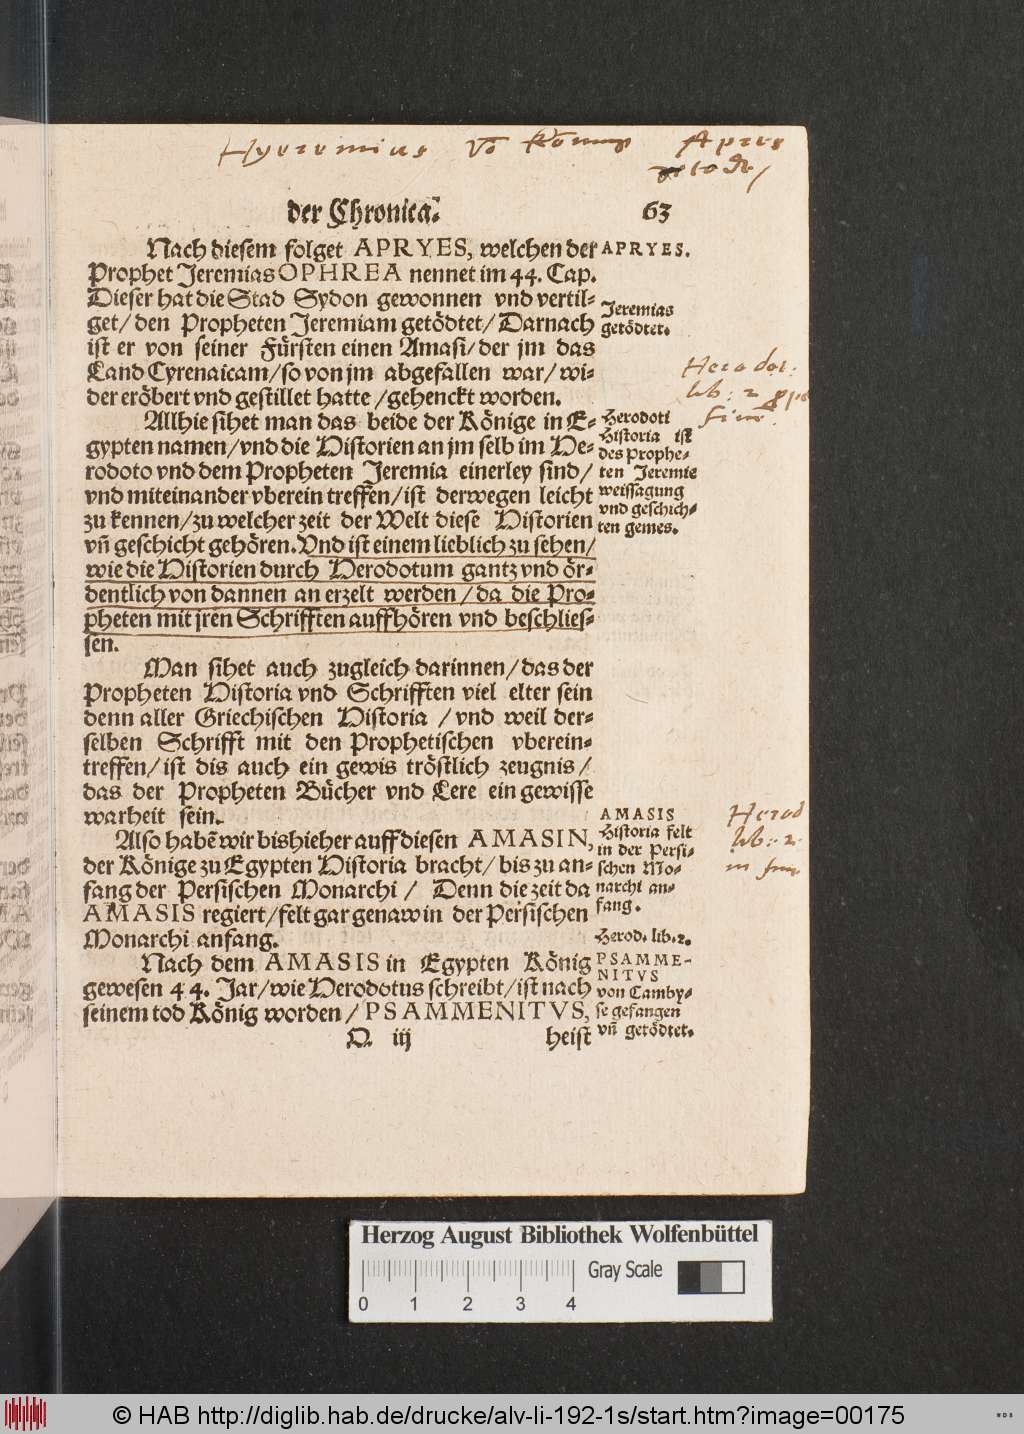 Hyeremius võ Apres
der Chronica. 63
Nach diesem folget APRYES, welchen der
Prophet Jeremias OPHREA nennet im 44. Cap.
Dieser hat die Stad Sydon gewonnen vnd vertil-
get/ den Propheten Jeremiam getödtet/ Darnach
ist er von seiner Fürsten einen Amasi/ der jm das
Land Cyrenaicam/ so von jm abgefallen war/ wi-
der eröbert vnd gestillet hatte/ gehenckt worden.
Allhie sihet man das beide der Könige in E-
gypten namen/ vnd die Historien an jm selb im He-
rodoto vnd dem Propheten Jeremia einerley sind/
vnd miteinander vberein treffen/ ist derwegen leicht
zu kennen/ zu welcher zeit der Welt diese Historien
vñ geschicht gehören. Vnd ist einem lieblich zu sehen/
wie die Historien durch Herodotum gantz vnd ör-
dentlich von dannen an erzelt werden/ da die Pro-
pheten mit jren Schrifften auffhören vnd beschlies-
sen.
Man sihet auch zugleich darinnen/ das der
Propheten Historia vnd Schrifften viel elter sein
denn aller Griechischen Historia / vnd weil der-
selben Schrifft mit den Prophetischen vberein-
treffen/ ist dis auch ein gewis tröstlich zeugnis/
das der Propheten Bücher vnd Lere ein gewisse
warheit sein.
Also habẽ wir bishieher auff diesen AMASIN,
der Könige zu Egypten Historia bracht/ bis zu an-
fang der Persischen Monarchi / Denn die zeit da
AMASIS regiert/ felt gar genaw in der Persischen
Monarchi anfang.
Nach dem AMASIS in Egypten König
gewesen 44. Jar/ wie Herodotus schreibt/ ist nach
seinem tod König worden/ PSAMMENITVS,
Q iij heist
APRYES.
Jeremias
getödtet.
Herodot:
lib: 2
Herodoti
Historia ist
des Prophe-
ten Jeremie
weissagung
vnd geschich-
ten gemes.
AMASIS
Historia felt
in der Persi-
schen Mo-
narchi an-
fang.
Herod
lib: 2.
Herod. lib. 2.
PSAMME-
NITVS
von Camby-
se gefangen
vñ getödtet.
Herzog August Bibliothek Wolfenbüttel
0 1 2 3 4
Gray Scale
© HAB http://diglib.hab.de/drucke/alv-li-192-1s/start.htm?image=00175